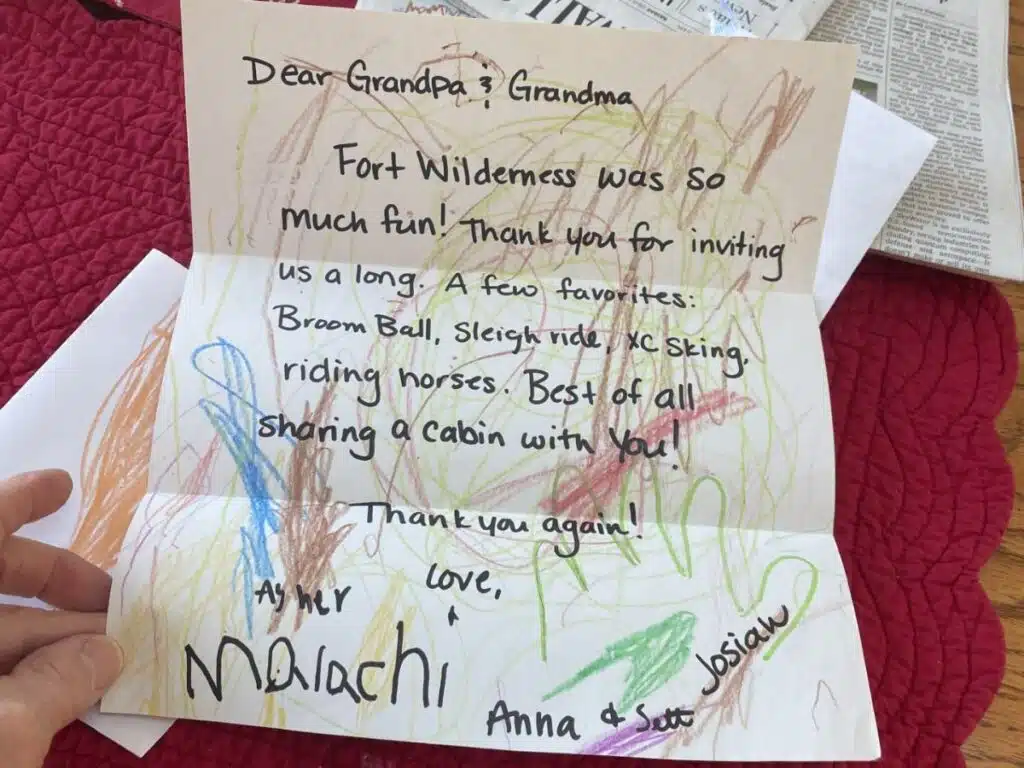 Dear Grandpa & Grandma
Fort Wilderness was so
much fun! Thank you for inviting
us a long. A few favorites:
Broom Ball, Sleigh ride, XC Sking,
riding horses. Best of all
sharing a cabin with You!
Thank you again!
Love,
Asher
Malachi
Josiah
Anna & Seth